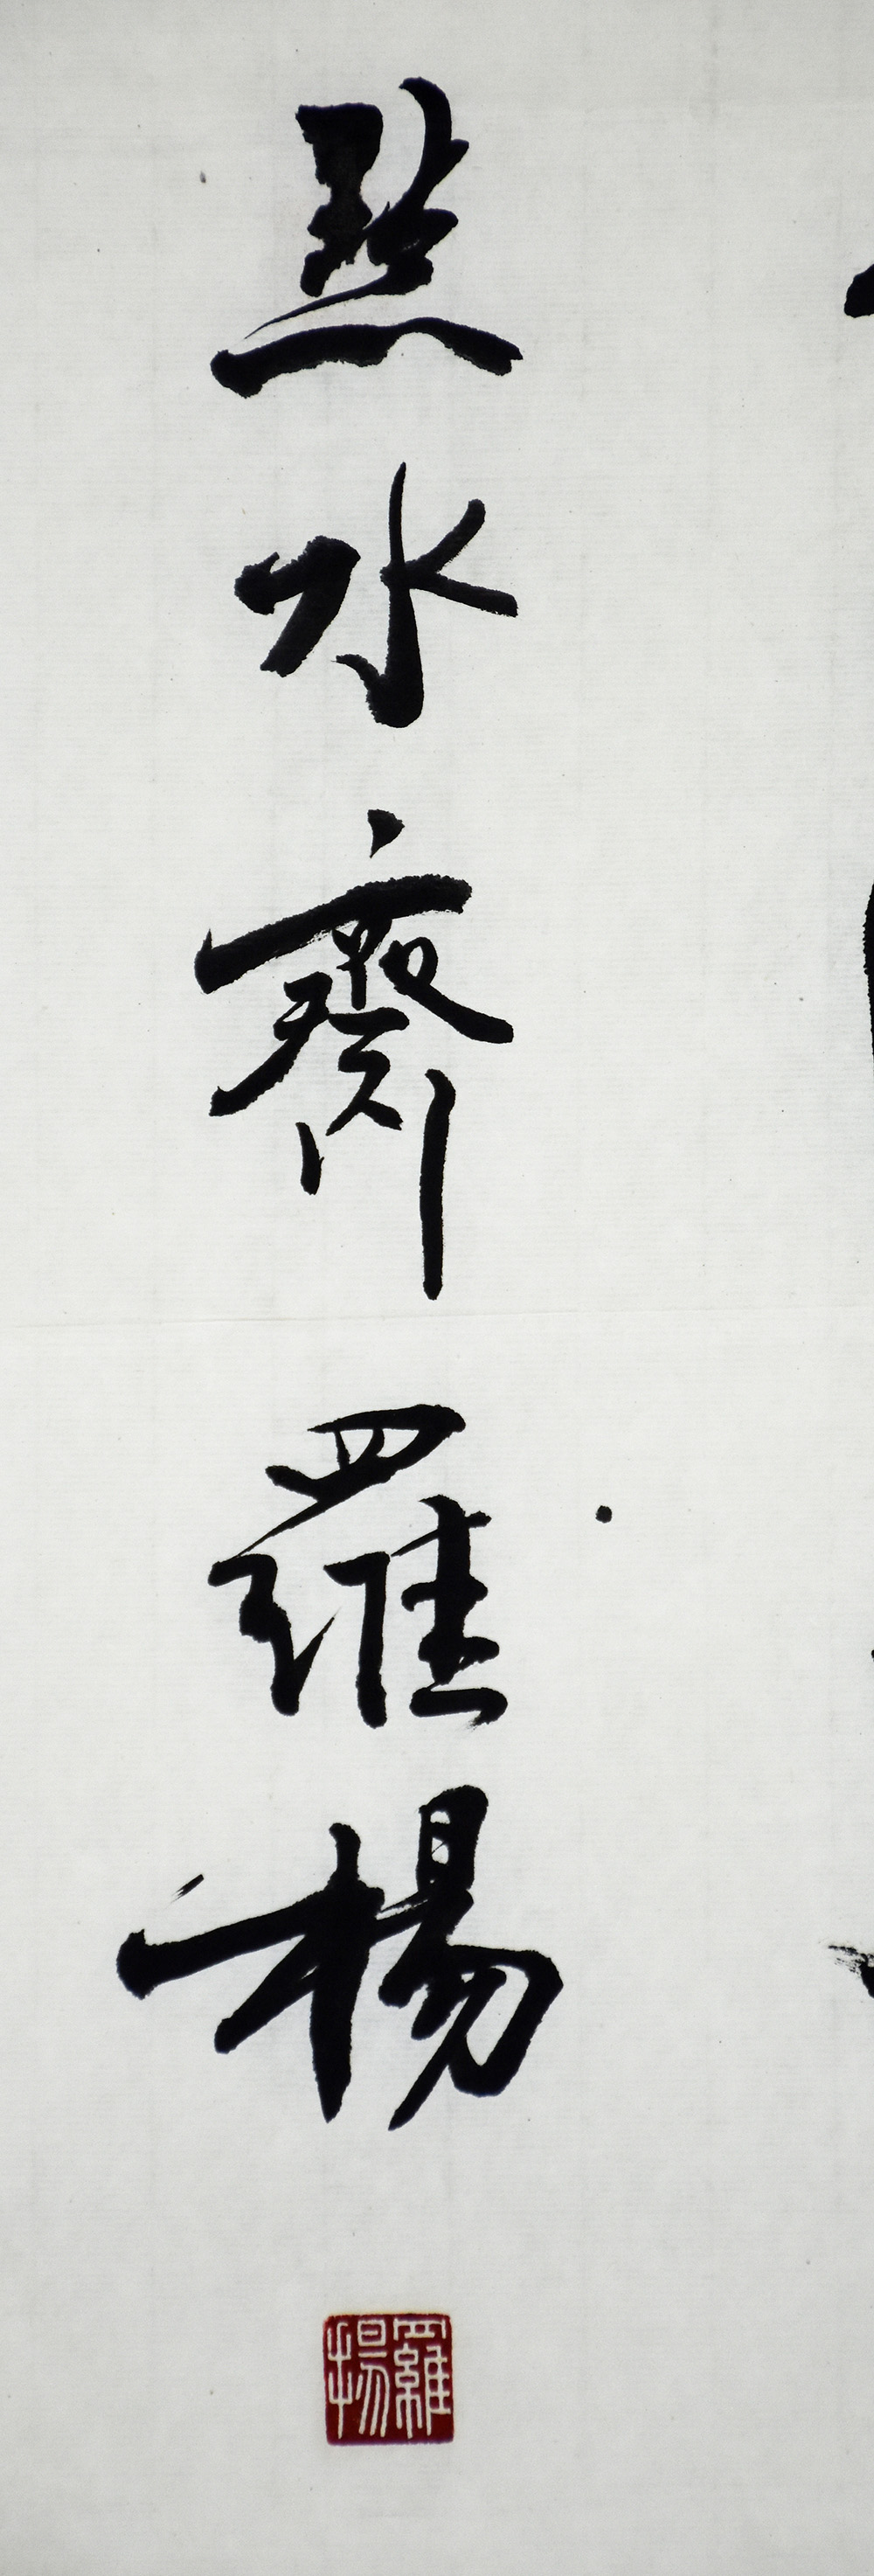 點水齋羅楊
羅楊